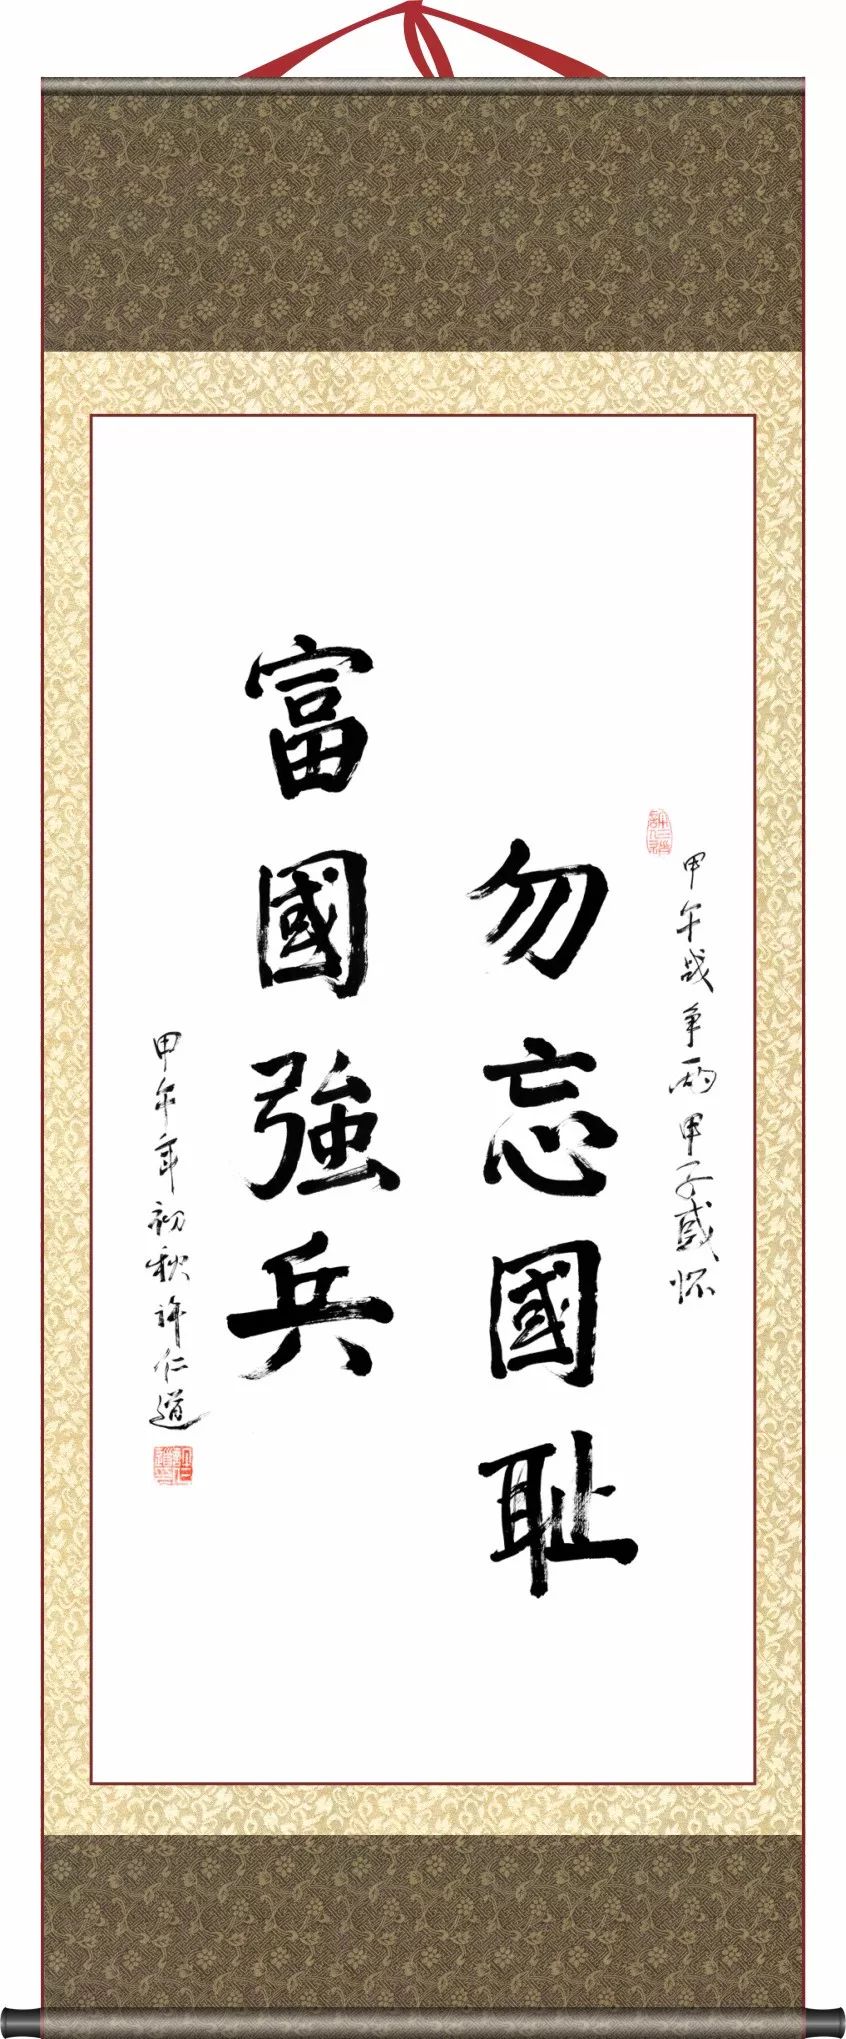 甲午战争兩甲子感怀
勿忘國耻
富國強兵
甲午年初秋許仁道